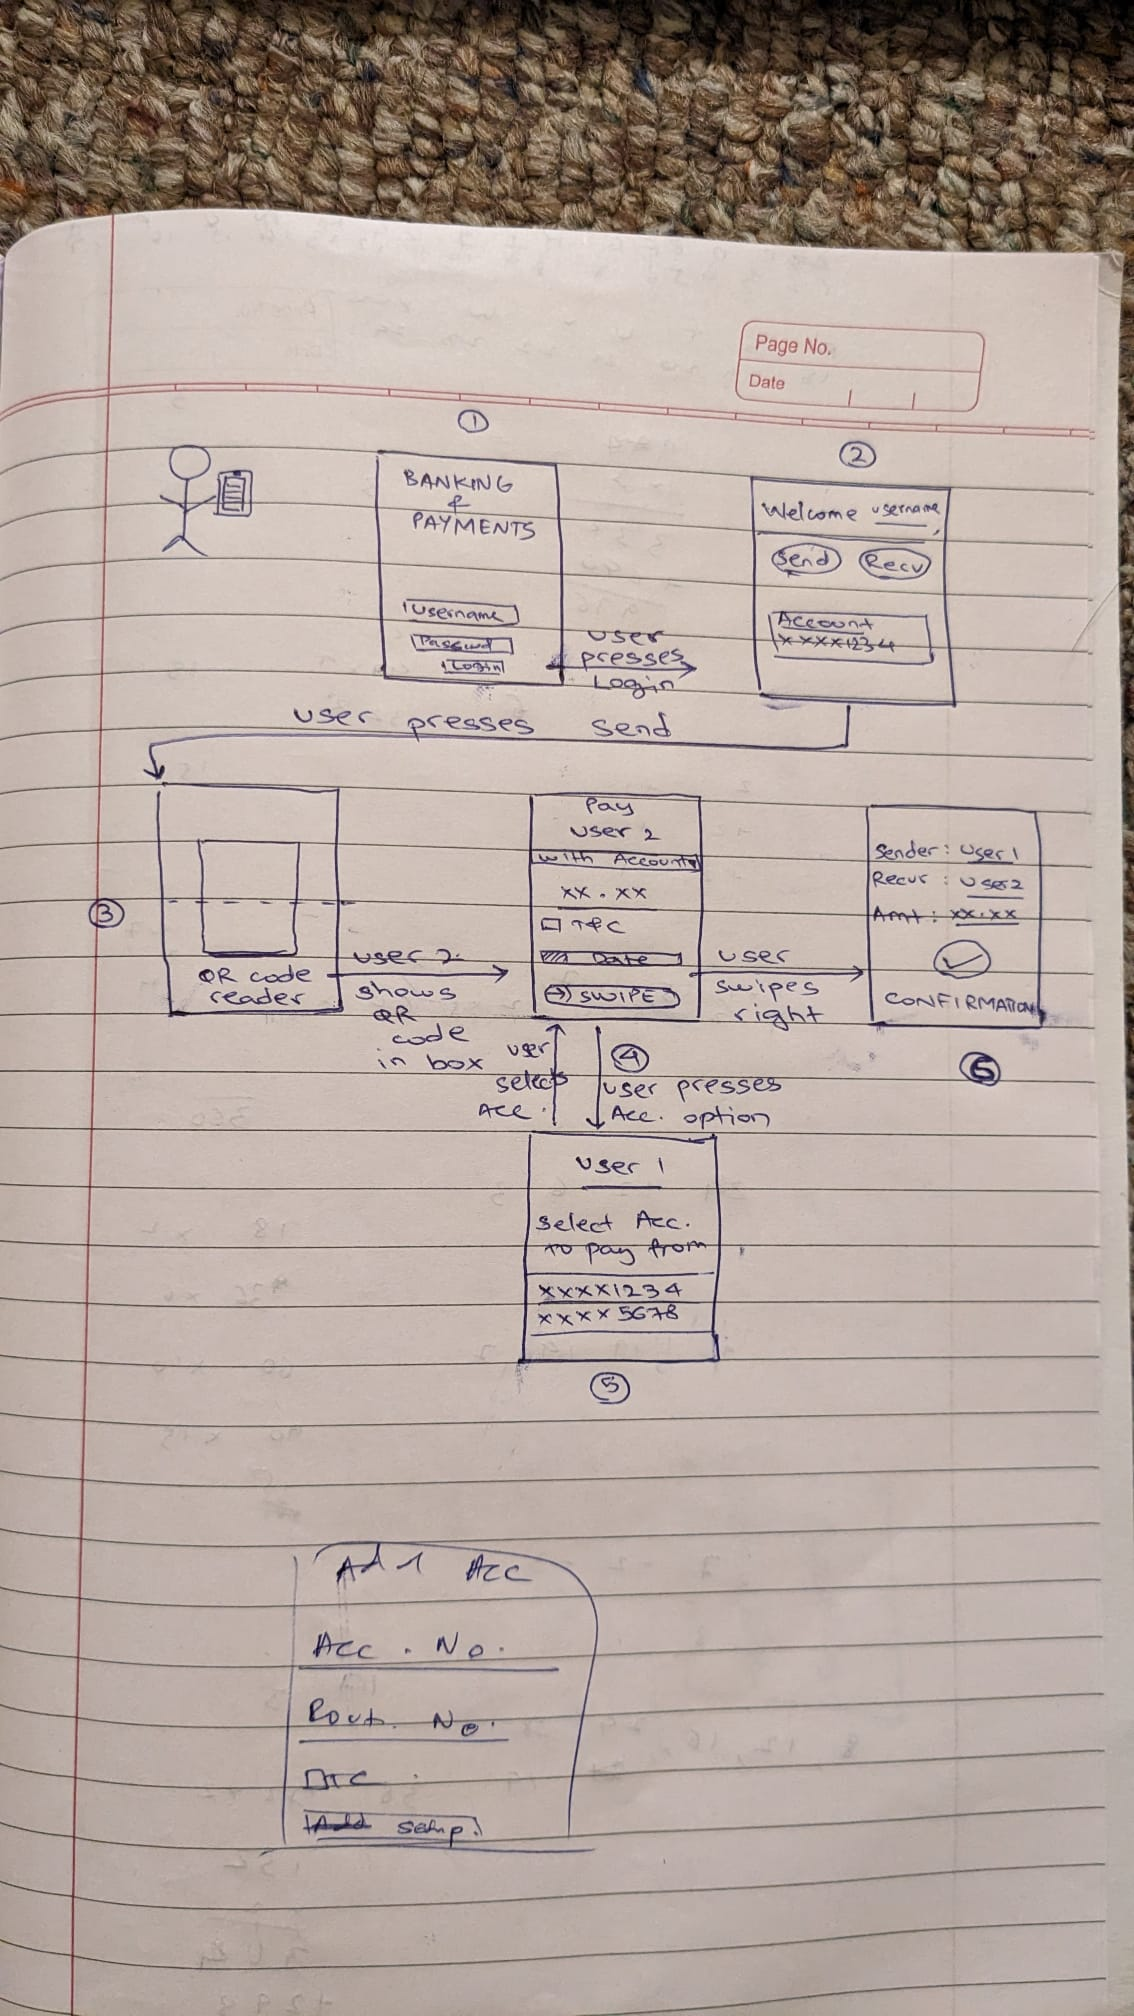 Page No.
Date
1
BANKING
&
PAYMENTS
Username
Passwd
Login
user
presses
Login
2
Welcome username
Send Recv
Account
xxxx1234
user presses send
3
QR code
reader
user 2
shows
QR
code
in box
Pay
user 2
with Account
xx.xx
T&C
Date
SWIPE
user
swipes
right
Sender: User 1
Recvr: User2
Amt: xx.xx
CONFIRMATION
6
user
selects
Acc.
4
user presses
Acc. option
User 1
Select Acc.
to pay from
xxxx1234
xxxx5678
5
Add Acc
Acc. No.
Rout. No.
Setup